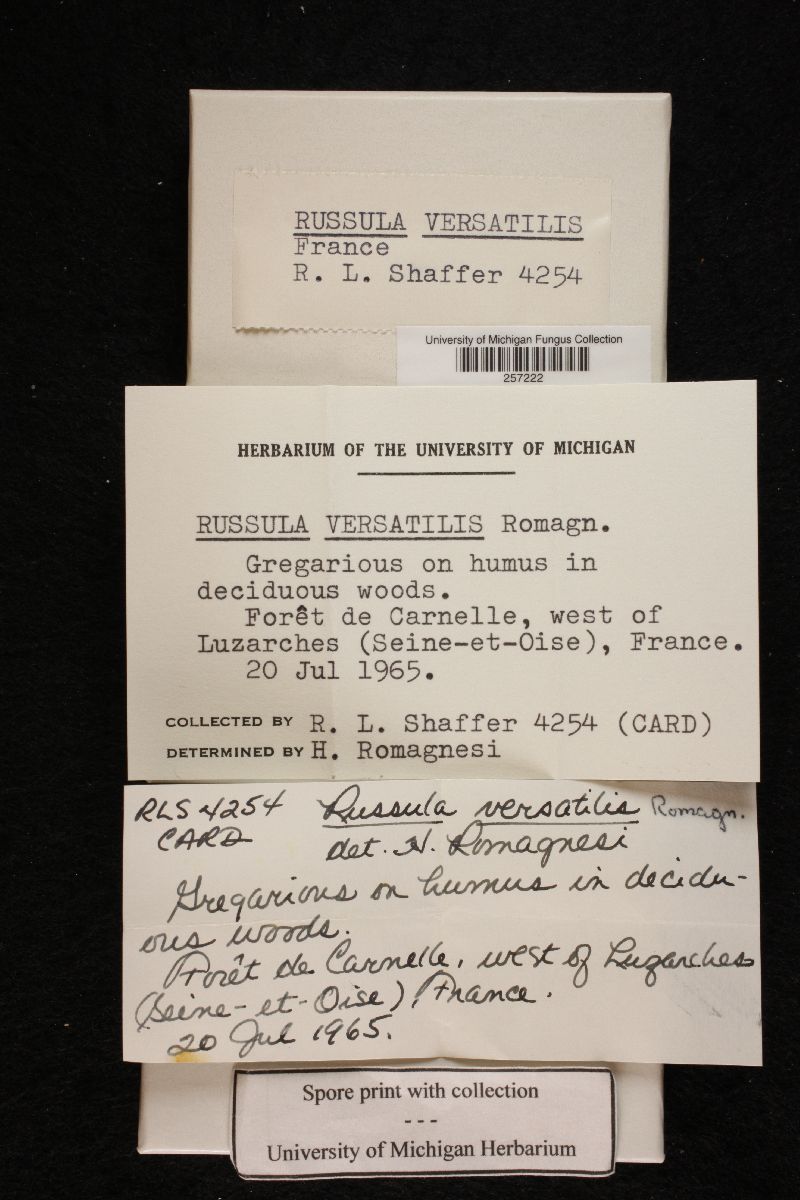 RUSSULA VERSATILIS
France
R. L. Shaffer 4254
University of Michigan Fungus Collection
257222
HERBARIUM OF THE UNIVERSITY OF MICHIGAN
RUSSULA VERSATILIS Romagn.
Gregarious on humus in
deciduous woods.
Forêt de Carnelle, west of
Luzarches (Seine-et-Oise), France.
20 Jul 1965.
COLLECTED BY R. L. Shaffer 4254 (CARD)
DETERMINED BY H. Romagnesi
RLS 4254 Russula versatilis Romagn.
CARD det. H. Romagnesi
Gregarious on humus in decidu-
ous woods.
Forêt de Carnelle, west of Luzarches
(Seine-et-Oise), France.
20 Jul 1965.
Spore print with collection
---
University of Michigan Herbarium